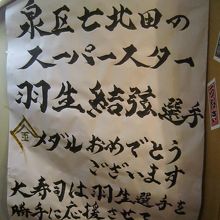 泉区七北田の
スーパースター
羽生結弦選手
金メダルおめでとう
ございます
大寿司は羽生選手を
勝手に応援させて